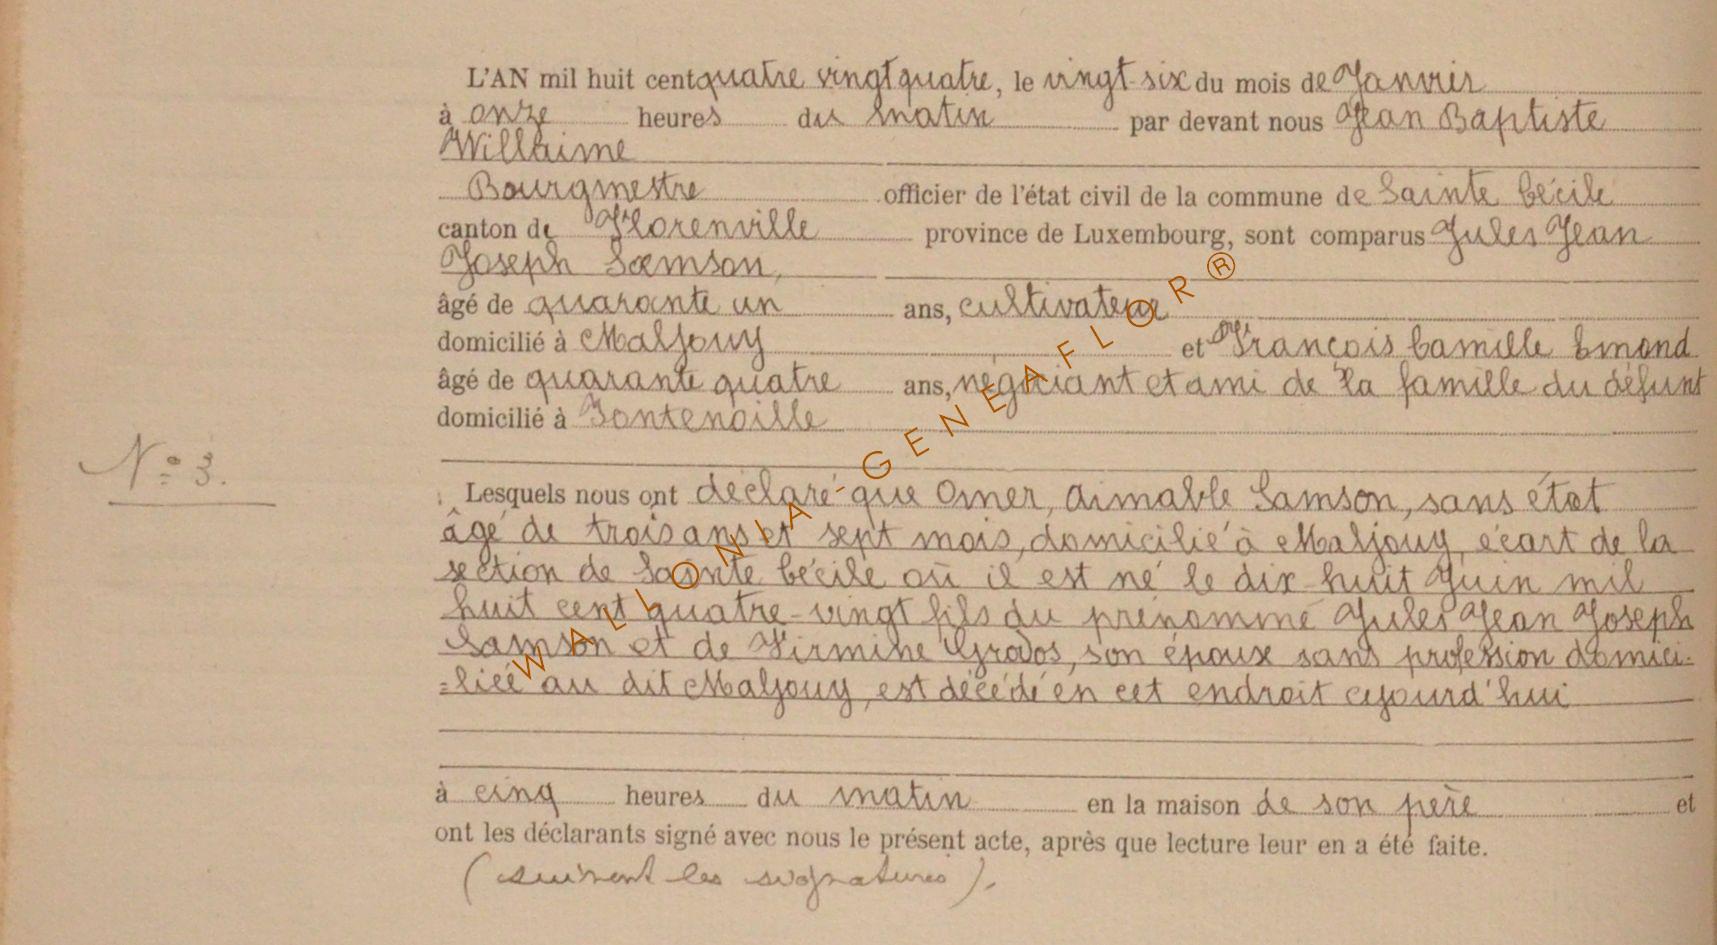 L'AN mil huit cent quatre vingt quatre, le vingt-six du mois de Janvier
à onze heures du matin par devant nous Jean Baptiste
Willaime
Bourgmestre officier de l'état civil de la commune de Sainte Cécile
canton de Florenville province de Luxembourg, sont comparus Jules Jean
Joseph Samson,
âgé de quarante un ans, cultivateur
domicilié à Maljouy et François Camille Emond
âgé de quarante quatre ans, négociant et ami de la famille du défunt
domicilié à Fontenoille
N° 3.
Lesquels nous ont déclaré que Omer, Aimable Samson, sans état
âgé de trois ans et sept mois, domicilié à Maljouy, écart de la
section de Sainte Cécile où il est né le dix-huit Juin mil
huit cent quatre-vingt fils du prénommé Jules Jean Joseph
Samson et de Firmine Grodos, son épouse sans profession domici-
=liée au dit Maljouy, est décédé en cet endroit cejourd'hui
à cinq heures du matin en la maison de son père et
ont les déclarants signé avec nous le présent acte, après que lecture leur en a été faite.
(suivent les signatures).
WALLONIA-GENEAFLOR®